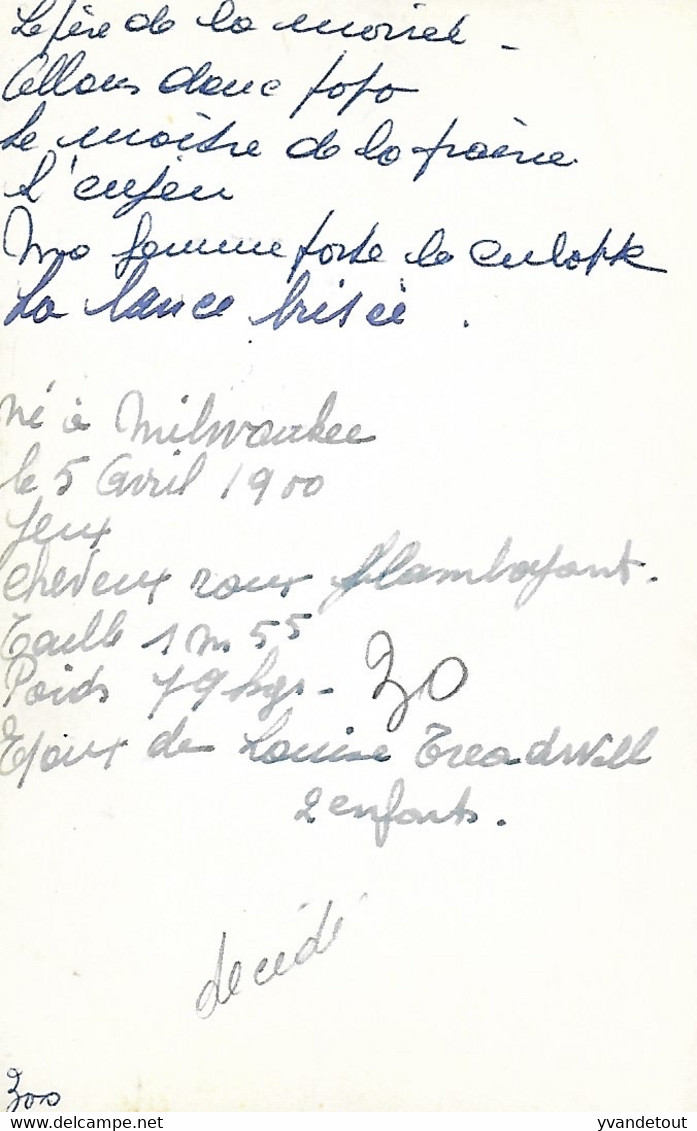 Le père de la mariée -
Allons donc papa
Le maître de la prairie
L'enjeu
Ma femme porte la culotte
La lance brisée.
né à Milwaukee
le 5 Avril 1900
Yeux
cheveux roux flamboyant.
Taille 1 m 55
Poids 79 kgs -
30
Epoux de Louise Treadwell
2 enfants.
décédé
300
www.delcampe.net
yvandetout